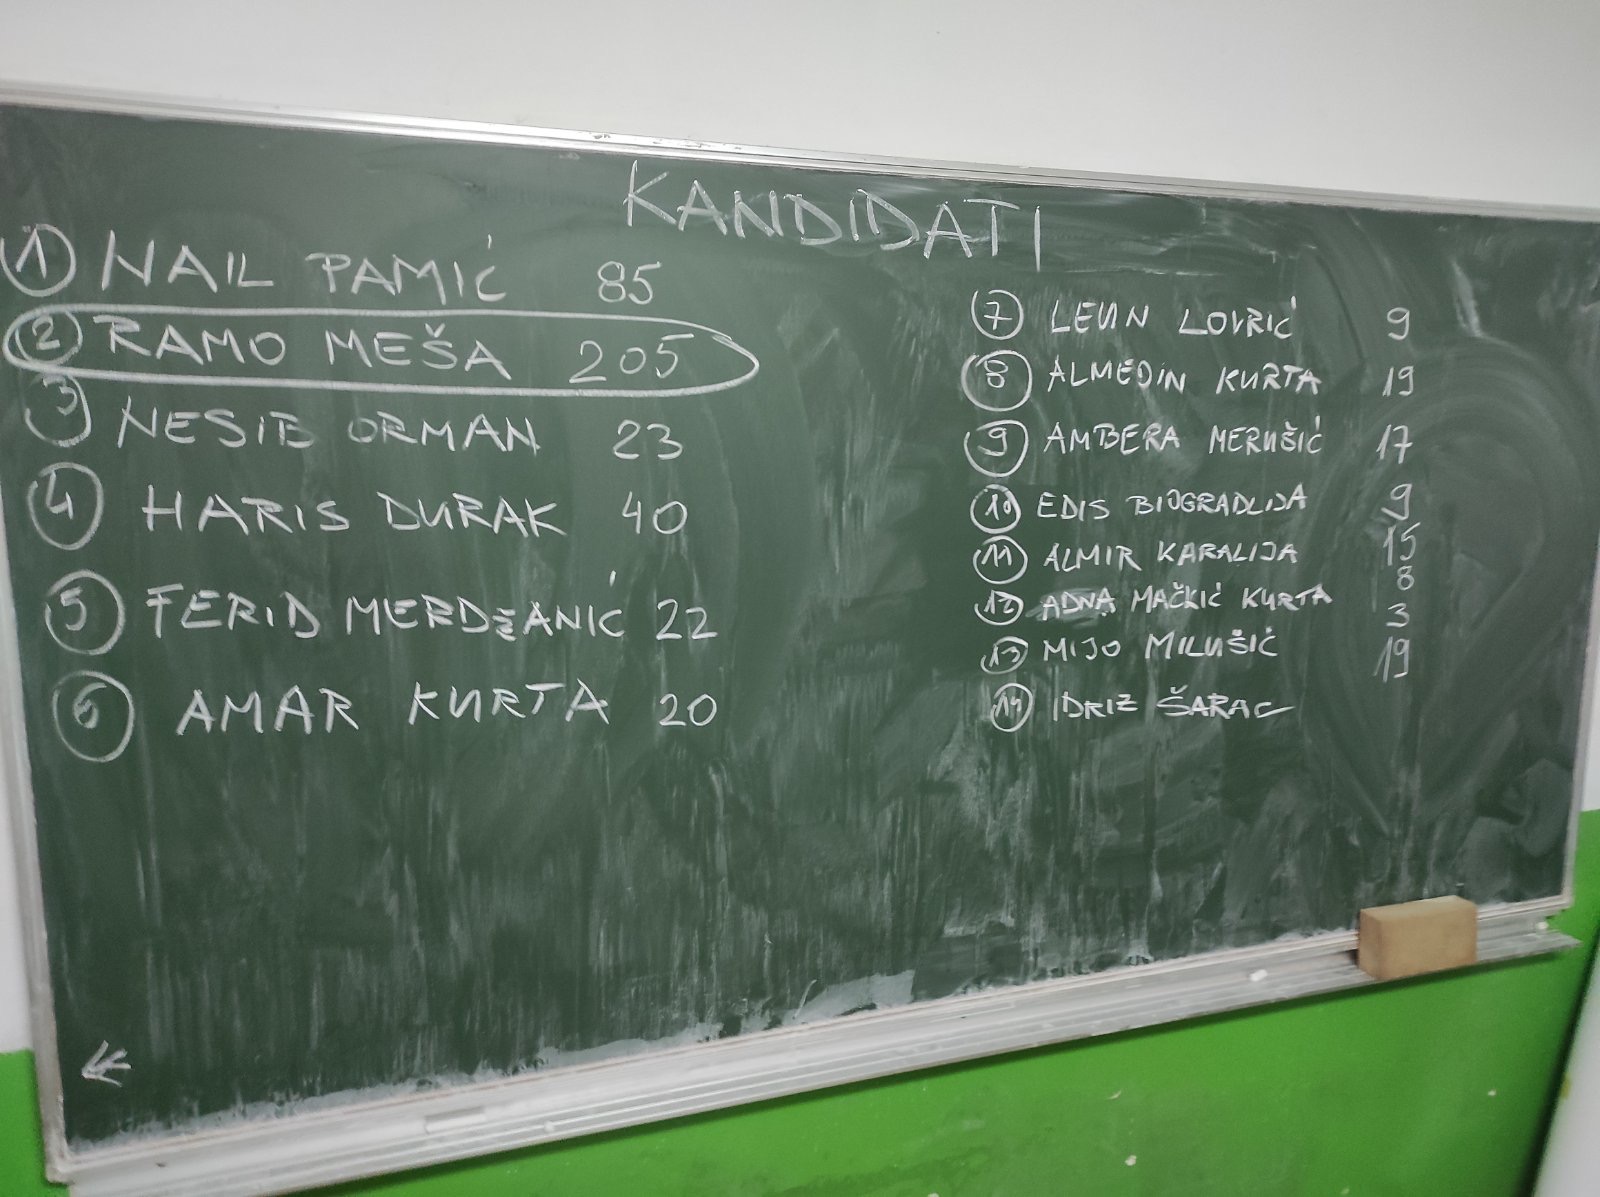 KANDIDATI
1 NAIL PAMIĆ 85
2 RAMO MEŠA 205
3 NESIB ORMAN 23
4 HARIS DURAK 40
5 FERID MERDŽANIĆ 22
6 AMAR KURTA 20
7 LEVIN LOVRIĆ 9
8 ALMEDIN KURTA 19
9 AMBERA MERUŠIĆ 17
10 EDIS BIOGRADLIJA 9
11 ALMIR KARALIJA 15
12 ADNA MAČKIĆ KURTA 8
13 MIJO MILUŠIĆ 3
14 IDRIZ ŠARAC 19